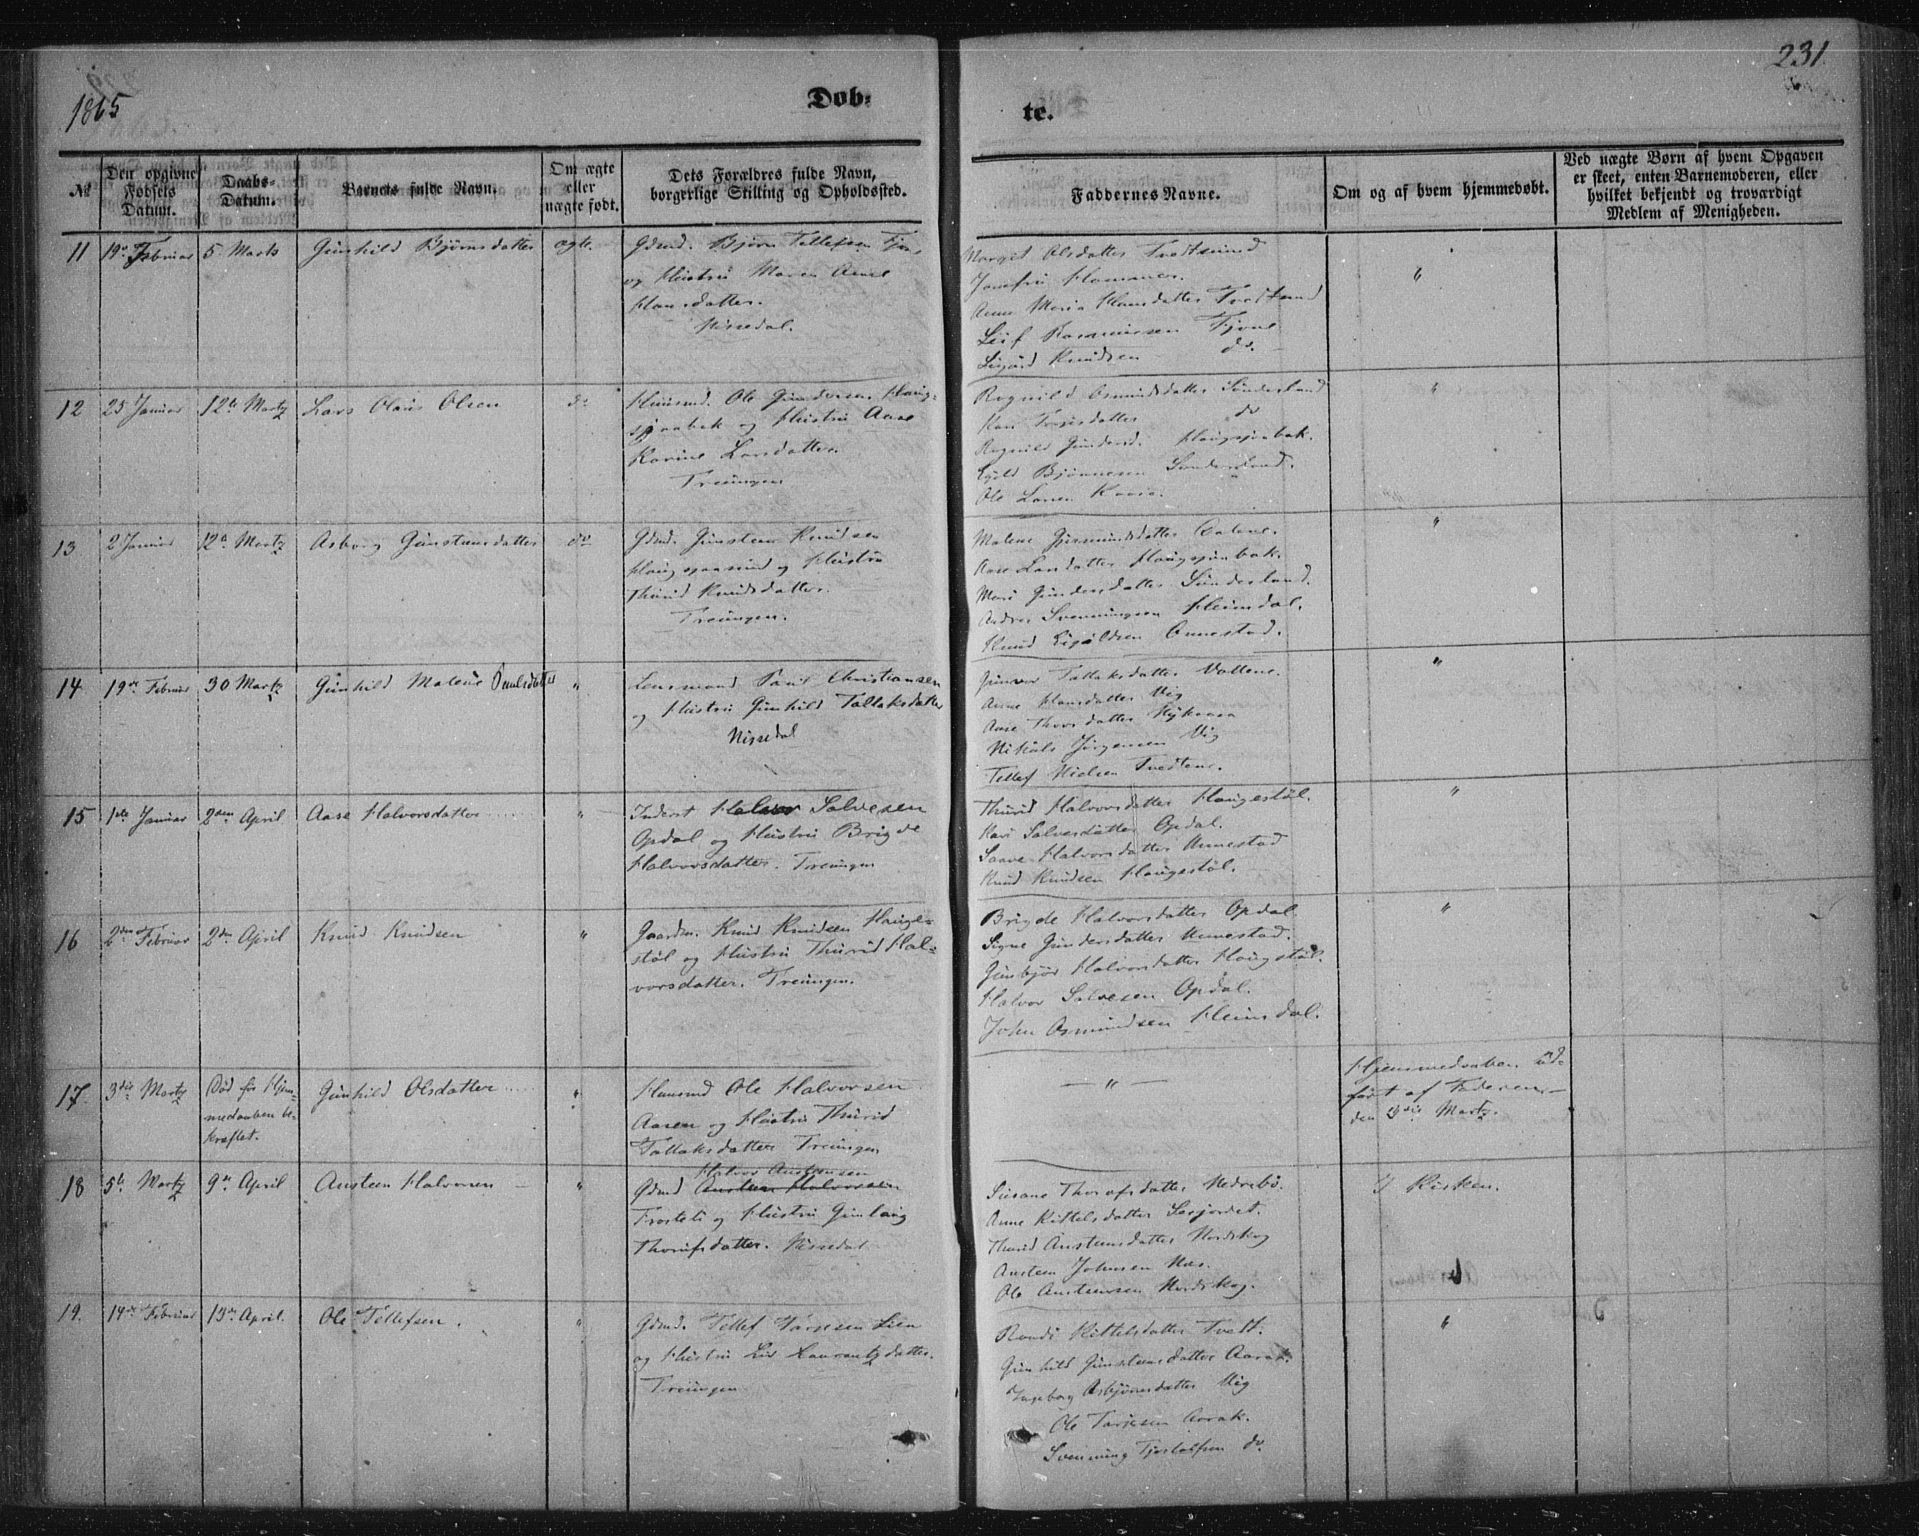 1865
Døb-
te.
231
№
Den opgivne
Fødsels
Datum.
Daabs-
Datum.
Barnets fulde Navn.
Om ægte
eller
uægte født.
Dets Forældres fulde Navn,
borgerlige Stilling og Opholdssted.
Faddernes Navne.
Om og af hvem hjemmedøbt.
Ved uægte Børn af hvem Opgaven
er skeet, enten Barnemoderen, eller
hvilket bekjendt og troværdigt
Medlem af Menigheden.
11
19de Februar
5 Marts
Gunhild Bjørnsdatter
ægte.
Gdmd. Bjørn Tellefsen
og Hustru Maren Anne
Hansdatter.
Nissedal.
Margit Olsdatter Tvedtsund
Jomfru
Anne Maria Hansdatter Tvedtsund
Leif Rasmussen Fjone
Sigurd Knudsen do.
"
12
25 Januar
12te Martz
Lars Olaus Olsen
do
Huusmd. Ole Gundersen Haug-
sjaabak og Hustru Aase
Karine Larsdatter.
Treungen
Rognild Osmundsdatter Sunderland
Kari do
Rognild Gundersd. Haugsjaabak.
Bjørnsen Sunderland.
Ole Larsen
"
13
2 Januar
12te Martz
Asborg Gunstensdatter
do
Gdmd. Gunsteen Knudsen
Haugsjaasund og Hustru
Thurid Knudsdatter.
Treungen.
Malene
Aase Larsdatter Haugsjaabak.
Mari Gundersdatter Sunderland.
Andres Svenningsen Heimdal.
Knud Annestad.
"
14
19de Februar
30 Martz
Gunhild Malene Paulsdatter
"
Lensmand Paul Christiansen
og Hustru Gunhild Tallaksdatter
Nissedal
Gunvor Tallaksdatter
Anne Hansdatter Vig
Aase Thorsdatter
Nikuls Jørgensen Vig
Tellef Nielsen Tvedtene.
"
15
1ste Januar
2den April
Aase Halvorsdatter
"
Inderst Halvor Salvesen
Opdal og Hustru Brigde
Halvorsdatter. Treungen
Thurid Halvorsdatter Haugestøl.
Kari Salvesdatter Opdal.
Saave Halvorsdatter Annestad
Knud Knudsen Haugestøl.
"
16
2den Februar
2den April
Knud Knudsen
"
Gaardm. Knud Knudsen Hauge-
støl og Hustru Thurid Hal-
vorsdatter. Treungen.
Brigde Halvorsdatter Opdal
Signe Gundersdatter Annestad.
Gunbjør Halvorsdatter Haugestøl.
Halvor Salvesen Opdal.
John Osmundsen Heimdal.
"
17.
3die Martz
Død før Hjem-
medaaben be-
kræftet.
Gunhild Olsdatter
"
Huusmd Ole Halvorsen
Aasen og Hustru Thurid
Tallaksdatter Treungen
— " —
Hjemmedaaben ud-
ført af Faderen
den 3die Martz.
18
5te Martz
9de April
Austeen Halvorsen
"
Halvor Austensen
Gdmd Austeen Halvorsen
og Hustru Gunlaug
Thorufsdatter. Nissedal
Susane Thorufsdatter Nedrebø.
Anne Kittelsdatter
Thurid Austensdatter Nordskog
Austeen Johnsen Næs.
Ole Austensen Nordskog.
I Kirken.
19.
14de Februar
13de April.
Ole Tellefsen.
"
Gdmd. Tellef Tarjesen Lien
og Hustru Liv Laurantzdatter.
Treungen
Randi Kittelsdatter Tvett.
Gunhild Gunstensdatter Aarak.
Ingeborg Asbjørnsdatter Vig
Ole Tarjesen Aarak.
Svenning do.
"